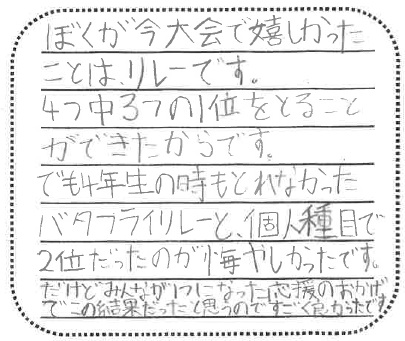 ぼくが今大会で嬉しかった
ことは、リレーです。
4つ中3つの1位をとること
ができたからです。
でも4年生の時もとれなかった
バタフライリレーと、個人種目で
2位だったのが悔やしかったです。
だけどみんなが1つになった応援のおかげ
でこの結果だったと思うのですごく良かったです